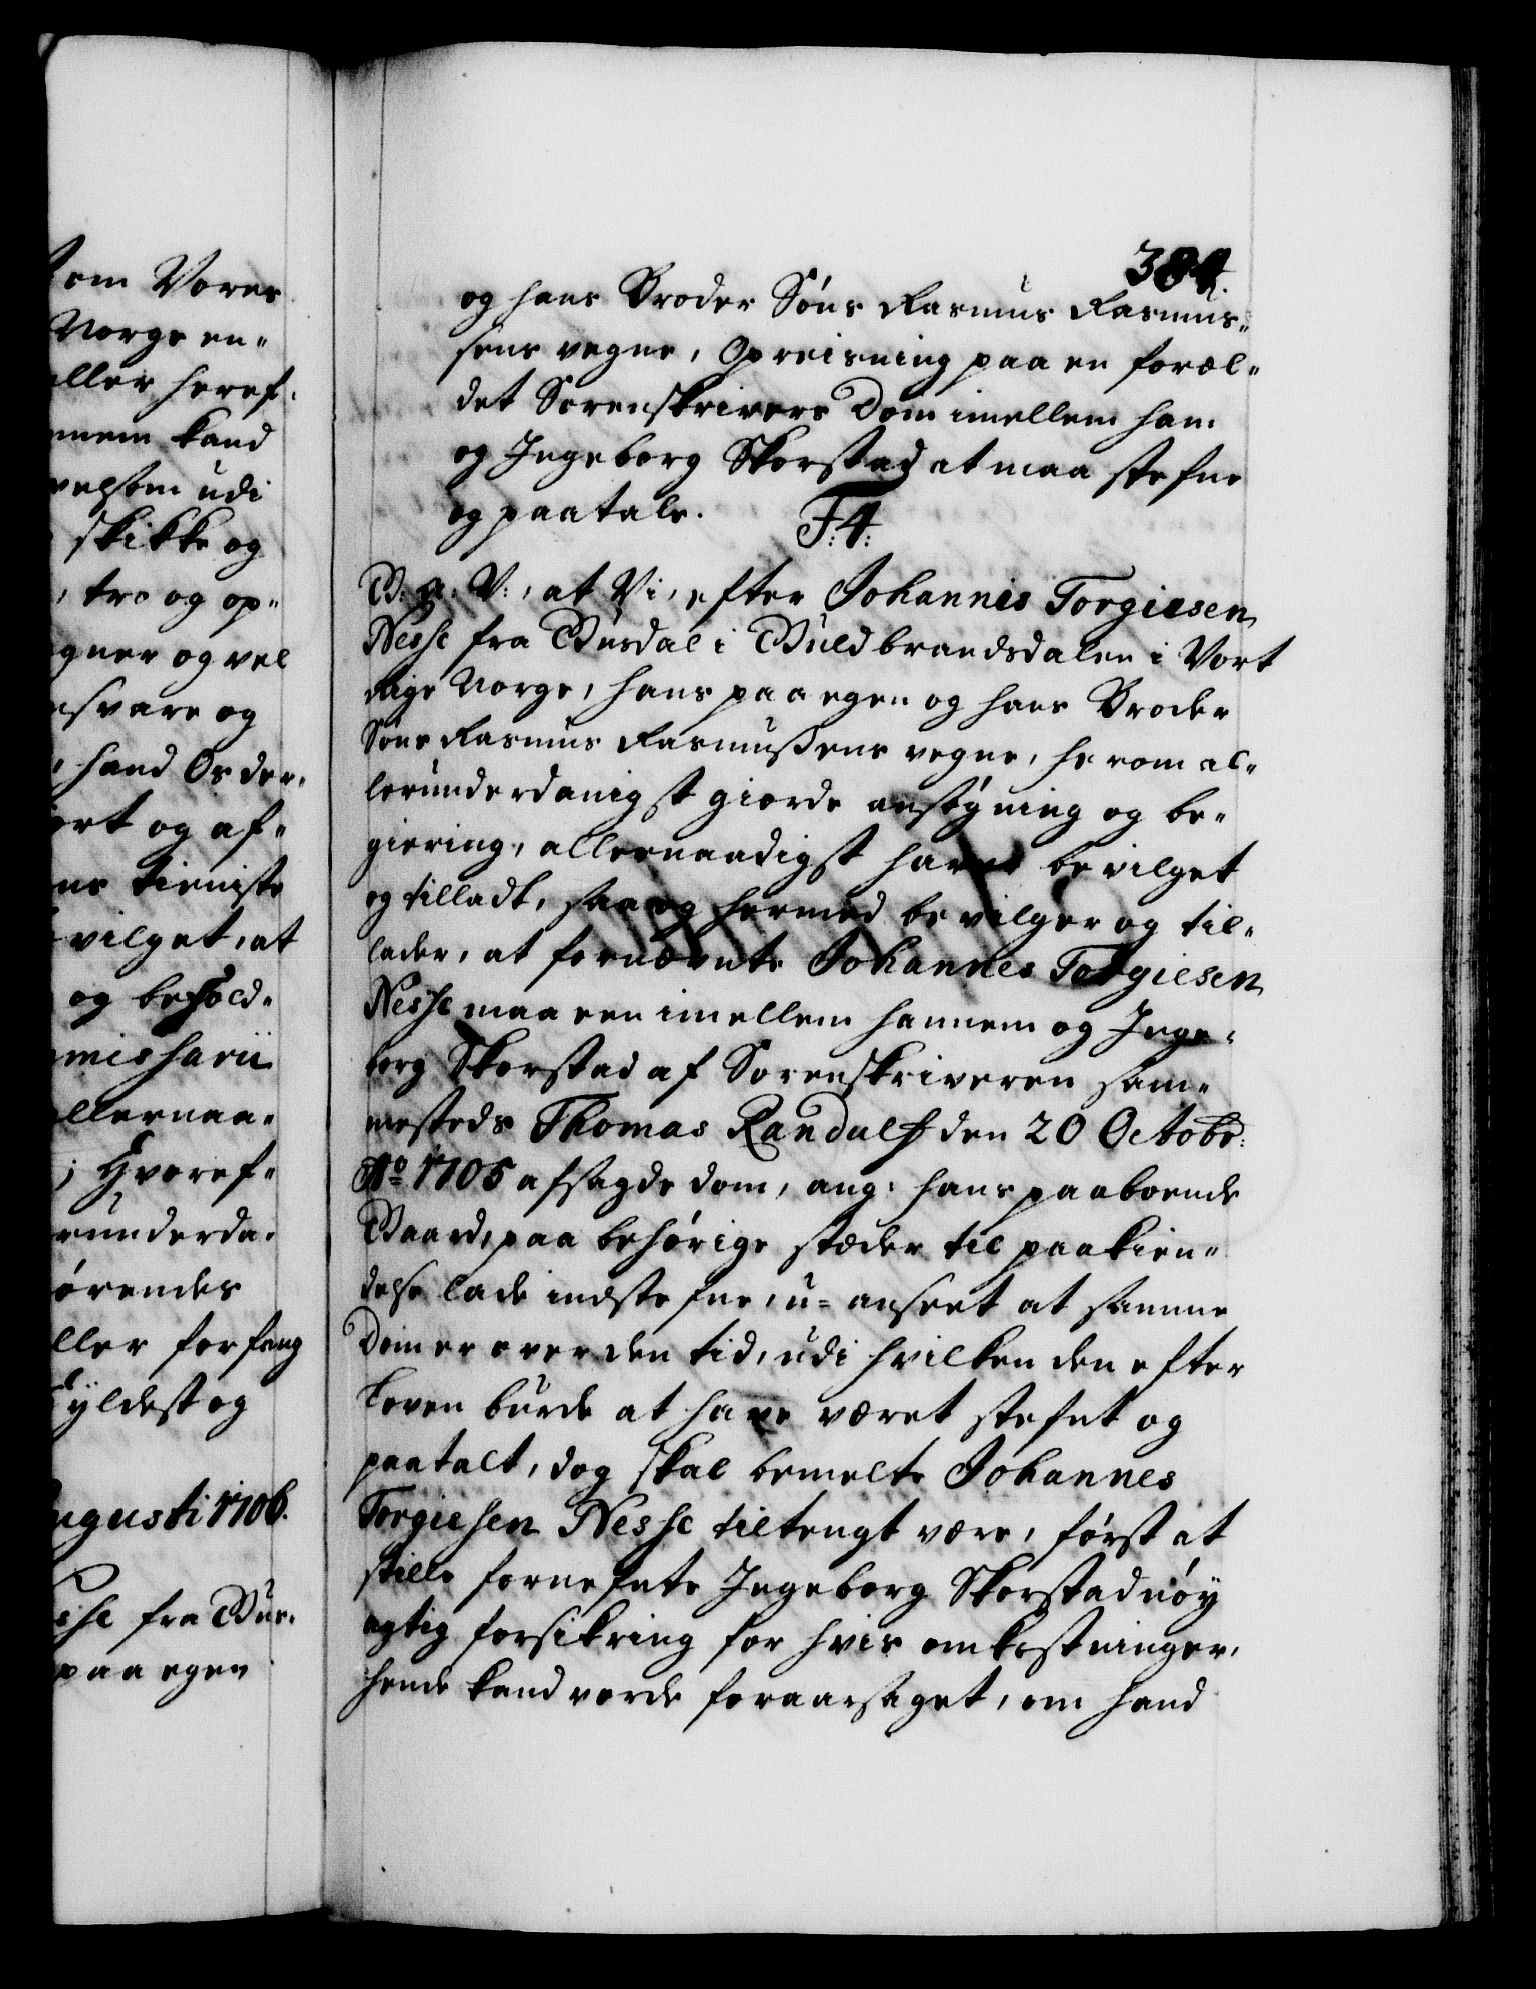 om Vores
Norge en-
eller heref-
nnem kand
velsom udi
skikke og
, tro og op-
gner og vel
svare og
, hand Os der-
ort og af-
ns tieniste
vilget, at
og behold-
missarii
llernaa-
; Hvoref-
runderda-
ørendes
ller forfang
yldest og
ugusti 1706.
sse fra Bus-
paa egen
380.
og hans Broder Søns Rasmus Rasmus-
sens vegne, Opreisning paa en foræl-
det Sorenskrivers Dom imellem ham
og Ingeborg Skorstad at maa stefne
og paatale.
F: 4:
G: A: V:, at Vi, efter Johannis Torgiesen
Nesse fra Busdal i Guldbrandsdalen i Vort
Rige Norge, hans paa egen og hans Broder
Søns Rasmus Rasmussens vegne, herom al-
lerunderdanigst giorde ansøgning og be-
giering, allernaadigst haver bevilget
og tilladt, saa og hermed bevilger og til-
lader, at fornævnte Johannes Torgiesen
Nesse maa een imellem hannem og Inge-
borg Skorstad af Sorenskriveren sam-
mesteds Thomas Randulf den 20 Octobr:
Ao 1705 afsagde dom, ang: hans paaboende
Gaard, paa behørige stæder til paakien-
delse lade indstefne, u-anseet at samme
Dom er over den tid, udi hvilken den efter
Loven burde at have været stefnt og
paatalt, dog skal bemelte Johannes
Torgiesen Nesse tiltengt være, først at
stille fornefnte Ingeborg Skorstad nøy
agtig forsikring for hvis omkostninger,
hende kand vorde foraarsaget, om hand